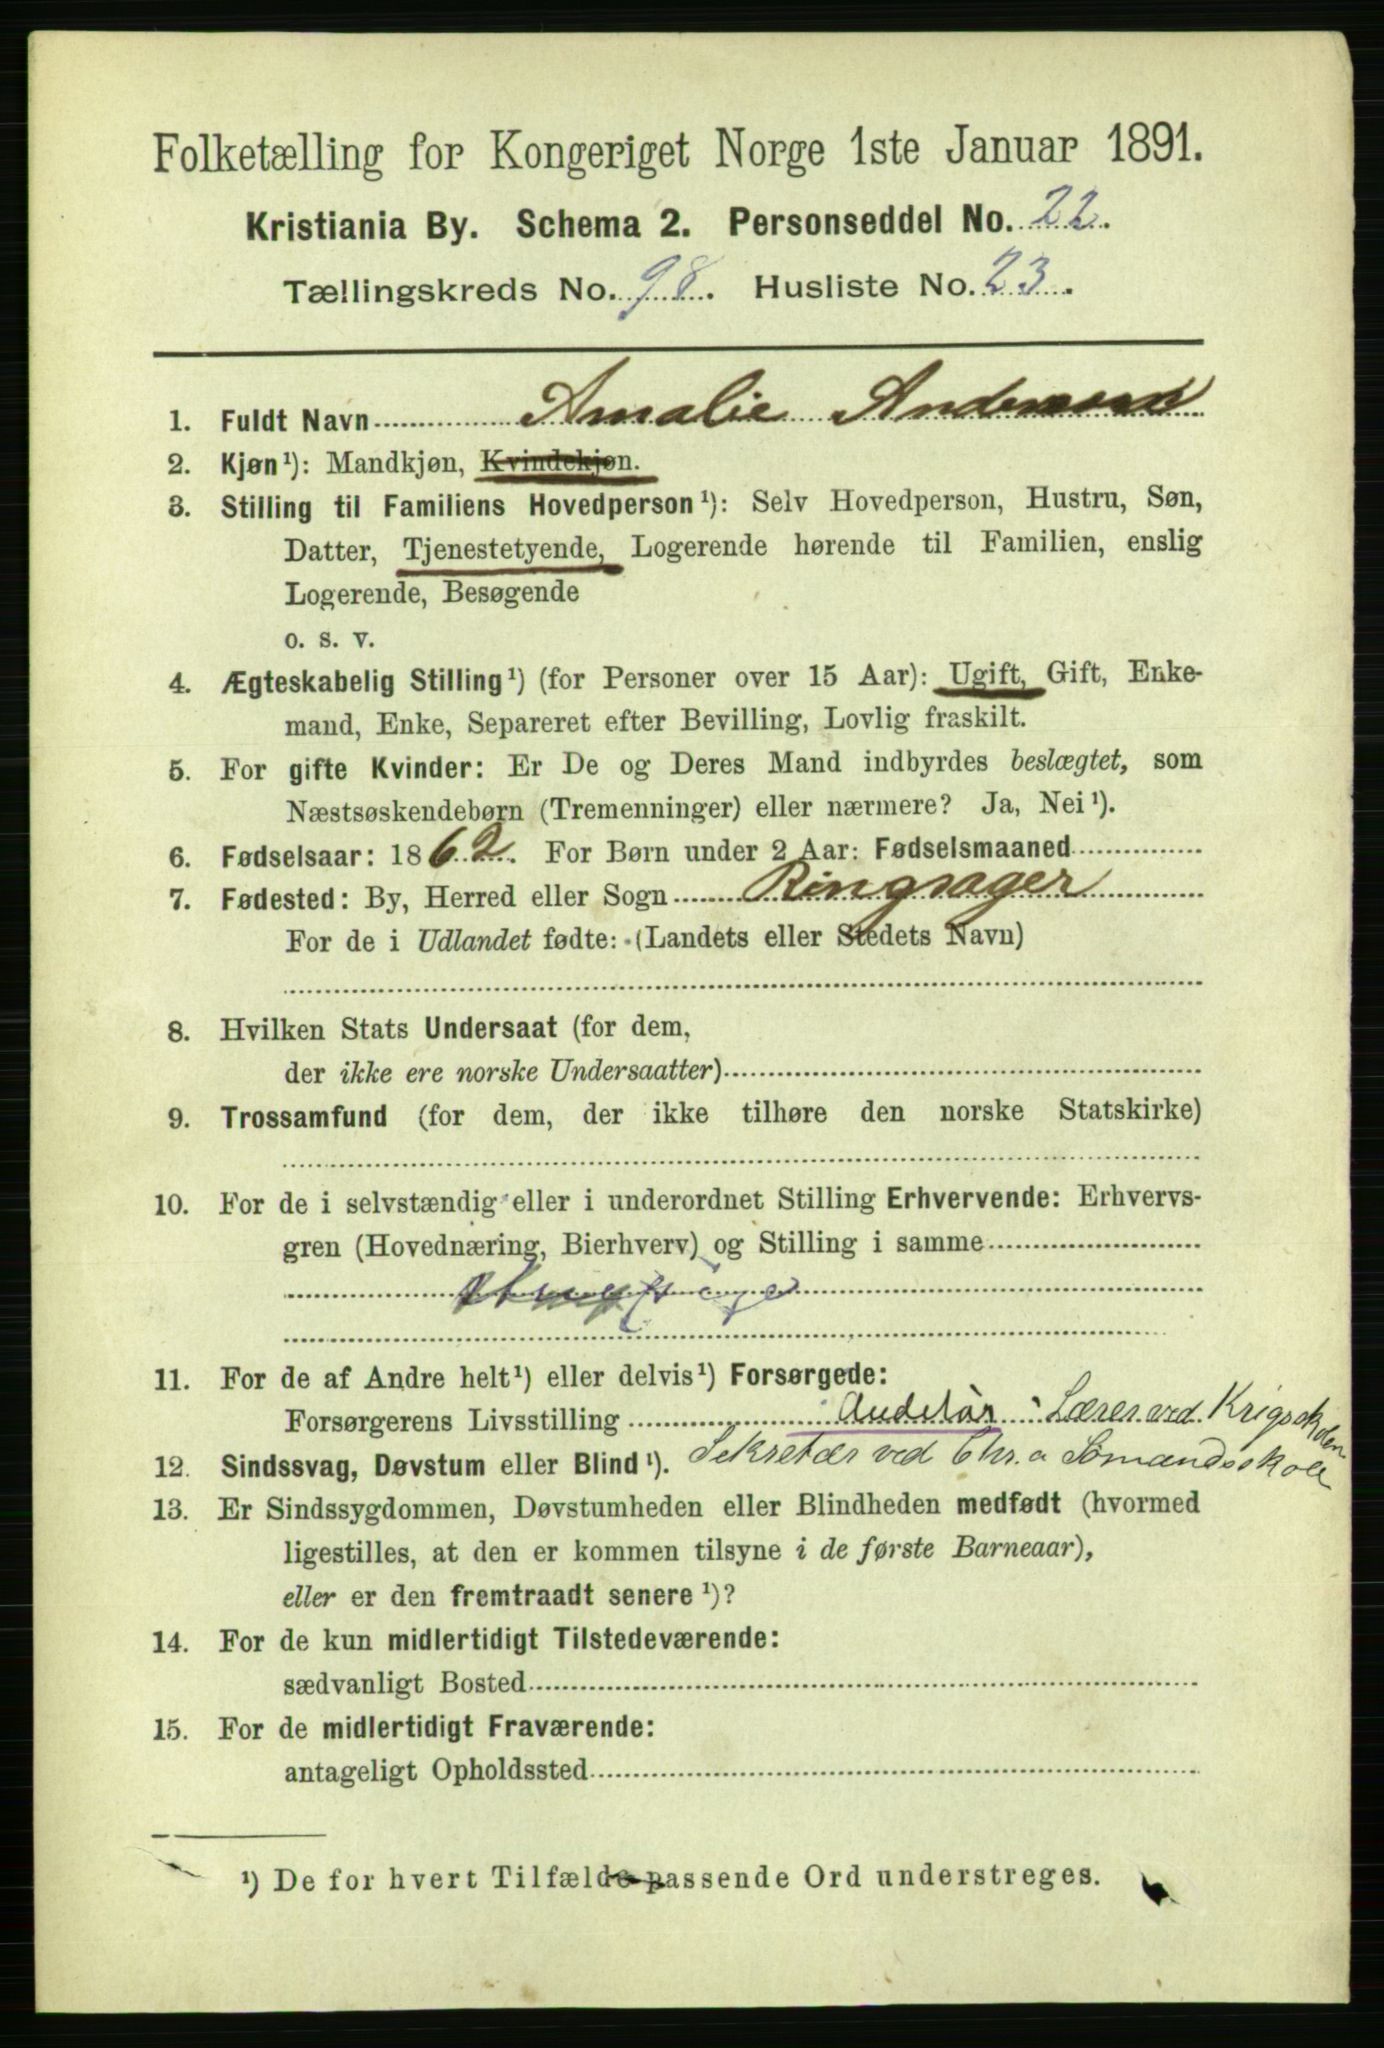 Folketælling for Kongeriget Norge 1ste Januar 1891.
Kristiania By. Schema 2. Personseddel No. 22.
Tællingskreds No. 98. Husliste No. 23.
1. Fuldt Navn Amalie Andersen
2. Kjøn¹): Mandkjøn, Kvindekjøn.
3. Stilling til Familiens Hovedperson¹): Selv Hovedperson, Hustru, Søn,
Datter, Tjenestetyende, Logerende hørende til Familien, enslig
Logerende, Besøgende
o. s. v.
4. Ægteskabelig Stilling¹) (for Personer over 15 Aar): Ugift, Gift, Enke-
mand, Enke, Separeret efter Bevilling, Lovlig fraskilt.
5. For gifte Kvinder: Er De og Deres Mand indbyrdes beslægtet, som
Næstsøskendebørn (Tremenninger) eller nærmere? Ja, Nei¹).
6. Fødselsaar: 1862. For Børn under 2 Aar: Fødselsmaaned
7. Fødested: By, Herred eller Sogn Ringsager
For de i Udlandet fødte: (Landets eller Stedets Navn)
8. Hvilken Stats Undersaat (for dem,
der ikke ere norske Undersaatter)
9. Trossamfund (for dem, der ikke tilhøre den norske Statskirke)
10. For de i selvstændig eller i underordnet Stilling Erhvervende: Erhvervs-
gren (Hovednæring, Bierhverv) og Stilling i samme
11. For de af Andre helt¹) eller delvis¹) Forsørgede:
Forsørgerens Livsstilling Auditør Lærer ved Krigsskolen
12. Sindssvag, Døvstum eller Blind¹). Sekretær ved Chr.a Sømandsskole
13. Er Sindssygdommen, Døvstumheden eller Blindheden medfødt (hvormed
ligestilles, at den er kommen tilsyne i de første Barneaar),
eller er den fremtraadt senere¹)?
14. For de kun midlertidigt Tilstedeværende:
sædvanligt Bosted
15. For de midlertidigt Fraværende:
antageligt Opholdssted
¹) De for hvert Tilfælde passende Ord understreges.